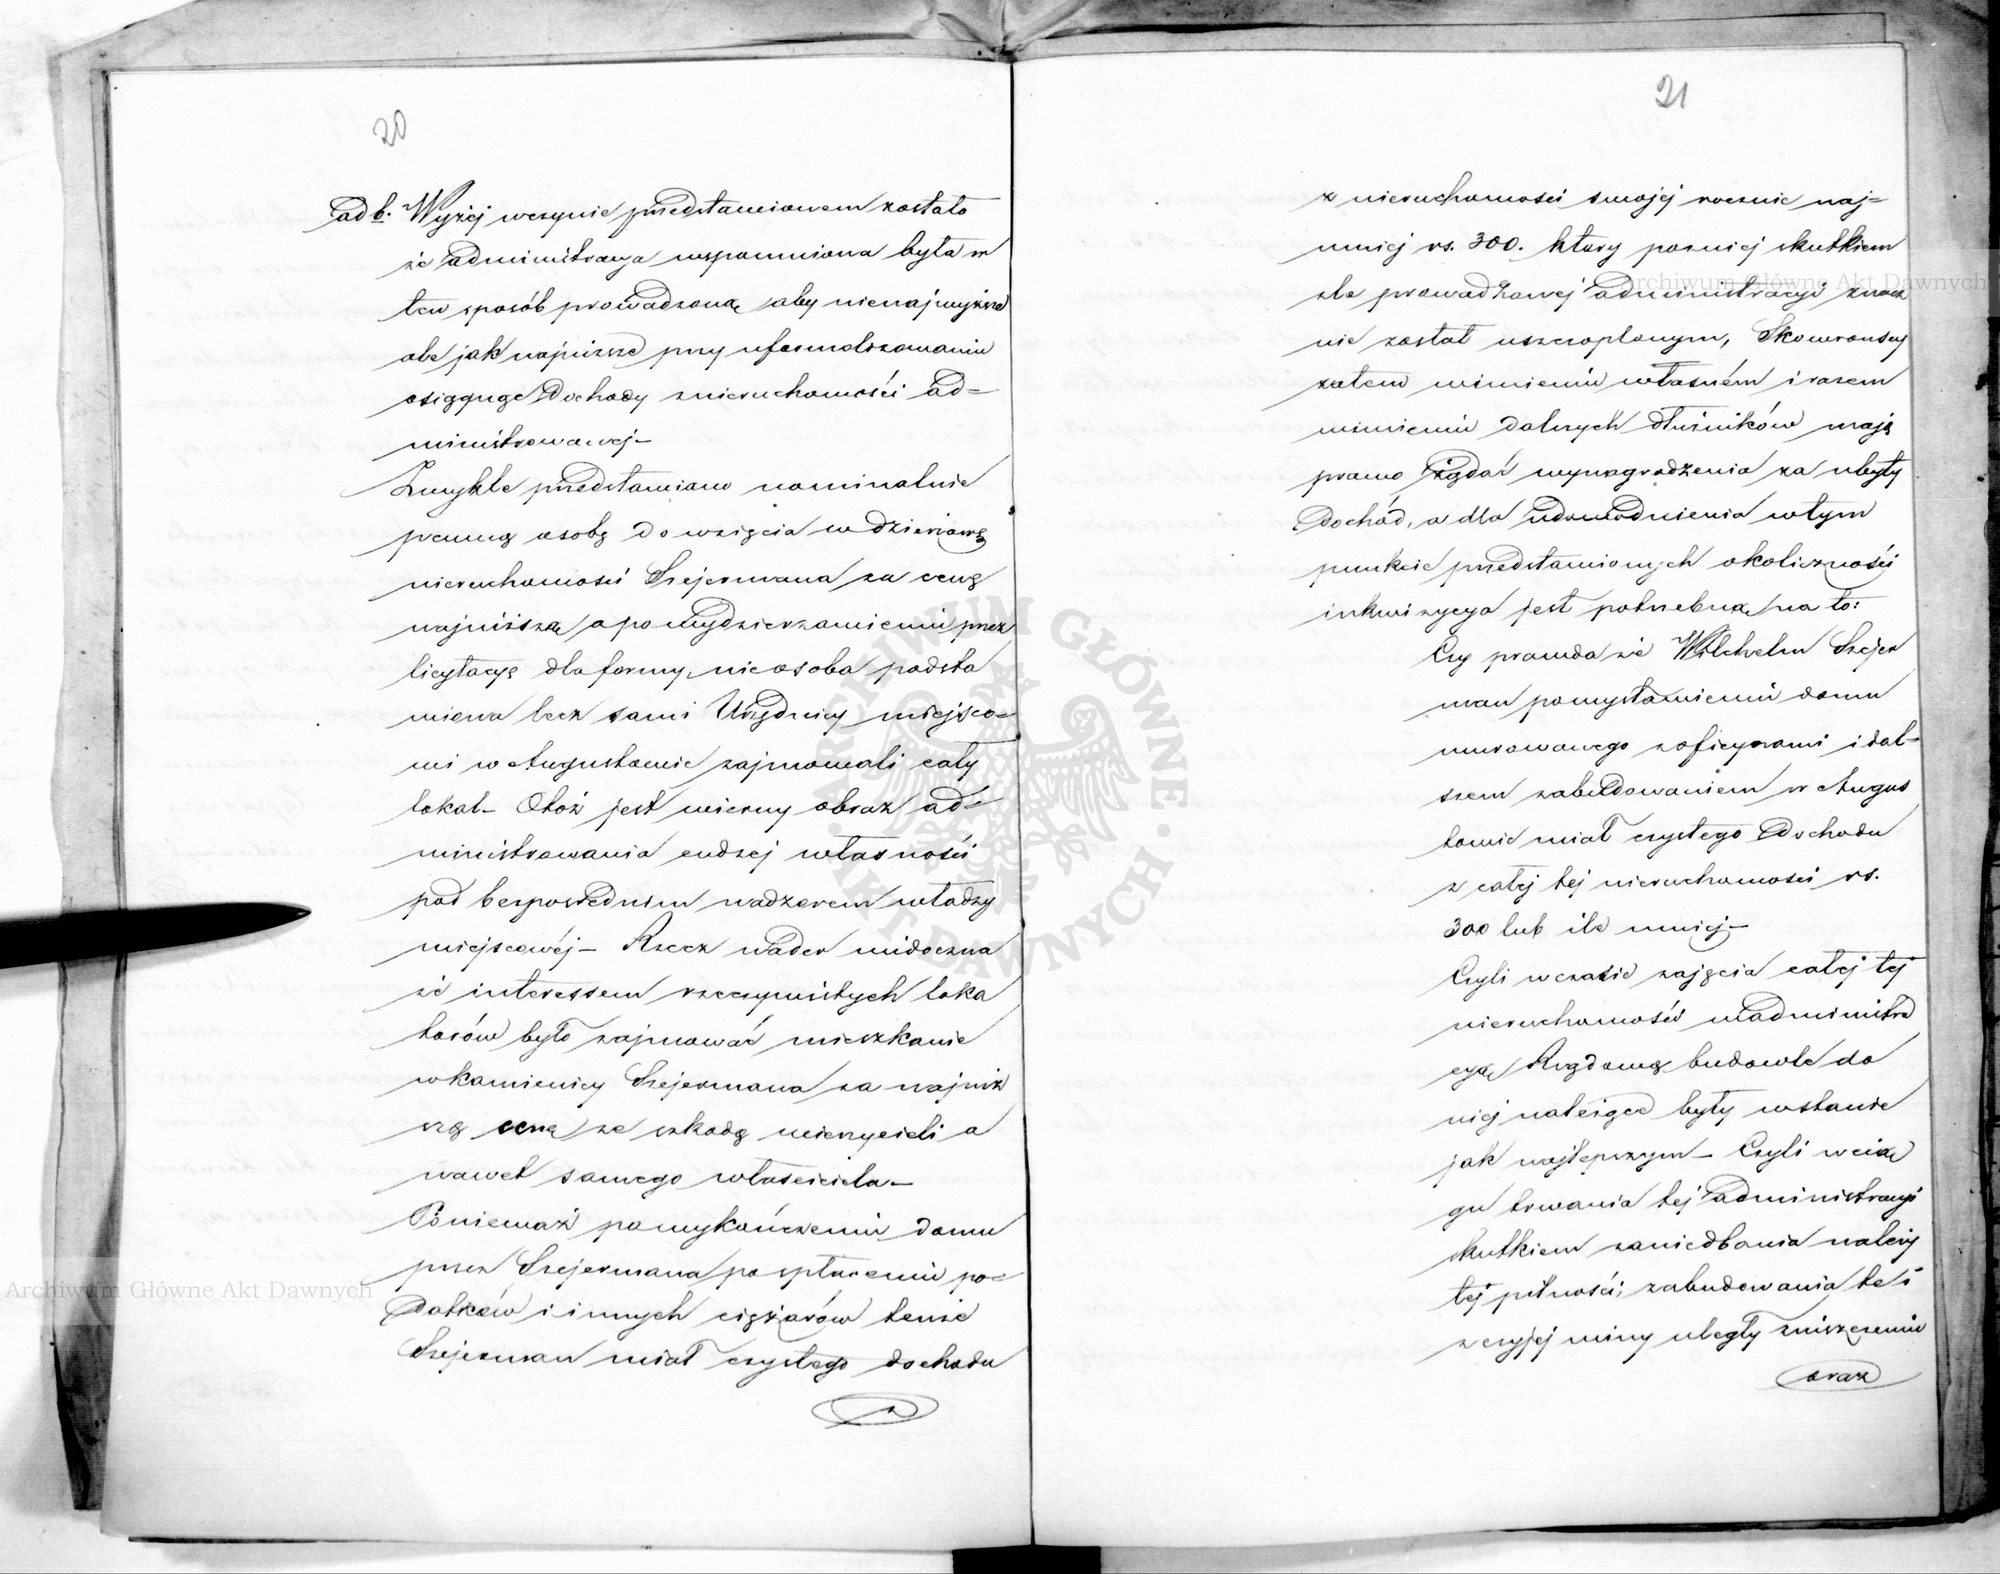 20
ad b. Wyżej wczynie przedstawionem zostało
że administracya wspomniona była w
ten sposób prowadzoną aby nienajwyższe
ale jak najniższe przy uformalizowaniu
osiągnąć dochody znieruchomości ad-
ministrowanej-
Zwykle przedstawiano nominalnie
pewną osobę do wzięcia w dzierżawę
nieruchomości Szejermana za cenę
najniższą, a po wydzierżawieniu przez
licytacyę dla formy, nie osoba podsta
wiona lecz sami Urzędnicy miejsco-
wi w Augustowie zajmowali cały
lokal- Otóż jest wierny obraz ad-
ministrowania cudzej własności
pod bezpośrednim nadzorem władzy
miejscowéj- Rzecz nader widoczna
że interessem rzeczywistych loka
torów było zajmować mieszkanie
w kamienicy Szejermana za najniż
szą cenę ze szkodą wierzycieli a
nawet samego właściciela-
Ponieważ po wykończeniu domu
przez Szejermana po spłaceniu po-
datków i innych ciężarów tenże
Szejerman miał czystego dochodu
z
21
z nieruchomości swojéj rocznie naj-
mniej rs. 300. który pozniej skutkiem
źle prowadzonej administracyi znacz
nie został uszczuplonym, Skowrońscy
zatem wimieniu własném i razem
wimieniu dalszych dłużników mają
prawo żądać wynagrodzenia za ubyły
dochód, a dla udowodnienia wtym
punkcie przedstawionych okoliczności
inkwizycya jest potrzebną na to:
Czy prawda że Wilchelm Szejer
man po wystawieniu domu
murowanego z oficynami i dal-
szem zabudowaniem w Augus
towie miał czystego dochodu
z całej tej nieruchomości rs.
300 lub ile mniej-
Czyli wczasie zajęcia całej tej
nieruchomości w administra
cyą Rządową budowle do
niej należące były w stanie
jak najlepszym- Czyli w cią
gu trwania tej administracyi
skutkiem zaniedbania należy
tej pilności, zabudowania te i
z czyjej winy uległy zniszczeniu
oraz
Archiwum Główne Akt Dawnych
Archiwum Główne Akt Dawnych
ARCHIWUM GŁÓWNE · AKT DAWNYCH ·